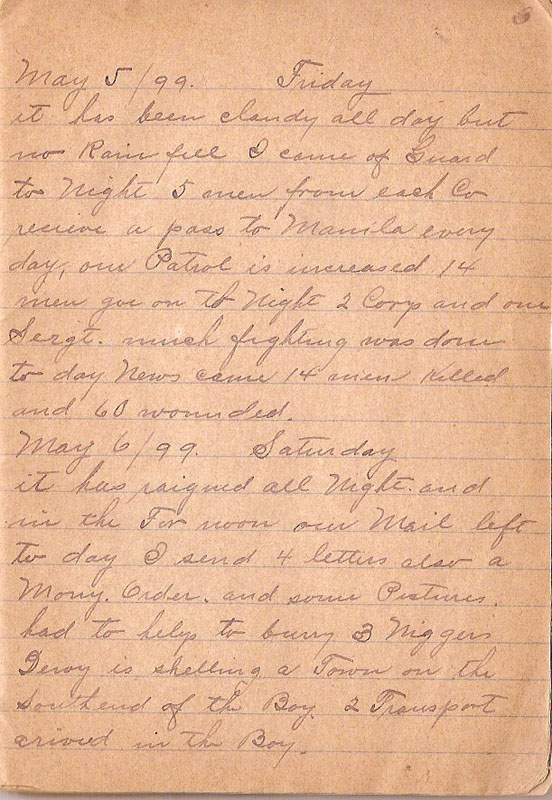 May 5/99. Friday
it has been claudy all day but
no Rain fell I came of Guard
to Night 5 men from each Co
recieve a pass to Manila every
day, our Patrol is increased 14
men goe on to Night 2 Corp and one
Sergt. much fighting was done
to day News came 14 men Killed
and 60 wounded.
May 6/99. Saturday
it has raigned all Night. and
in the For noon our Mail left
to day I send 4 letters also a
Mony. Order. and some Pictures.
had to help to burry 3 Niggers
Dewy is shelling a Town on the
Southend of the Bay. 2 Transport
arived in the Bay.